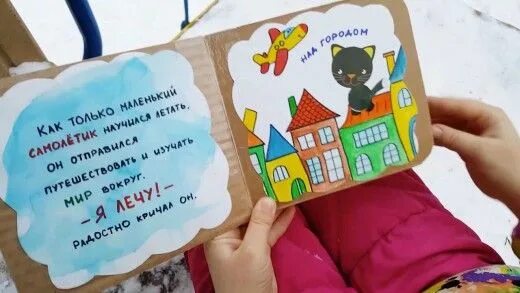 Как только маленький
самолётик научился летать,
он отправился
путешествовать и изучать
мир вокруг.
- Я лечу! -
радостно кричал он.
над городом